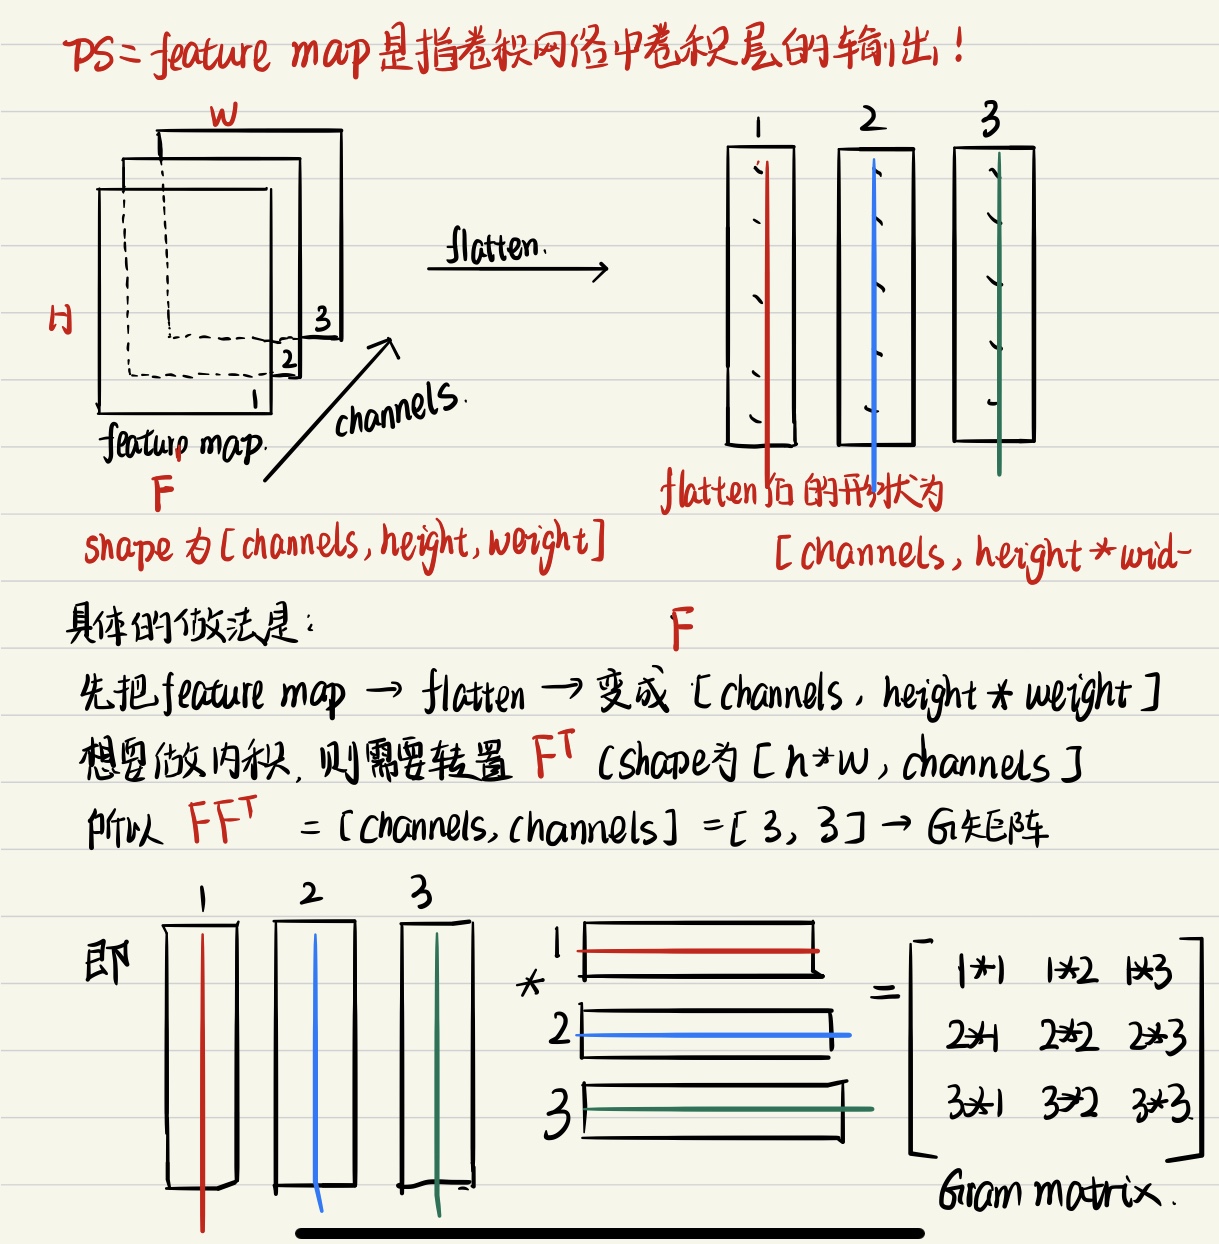 PS = feature map是指卷积网络中卷积层的输出!
W
1 2 3
flatten.
H
3
2
1
channels.
feature map.
F
flatten后的形状为
shape为[channels, height, weight]
[channels, height * wid-
具体的做法是:
F
先把feature map → flatten → 变成 [channels, height * weight]
想要做内积, 则需要转置 Fᵀ (shape为 [h*w, channels]
所以 FFᵀ = [channels, channels] = [3, 3] → G矩阵
1 2 3
即
*
1
2
3
=
1*1 1*2 1*3
2*1 2*2 2*3
3*1 3*2 3*3
Gram matrix.